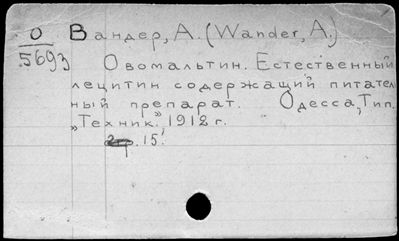 О Вандер, А. (Wander, A.)
5693 Овомальтин. Естественный
лецитин содержащий питатель
ный препарат. Одесса, Тип.
"Техник." 1912 г.
15.